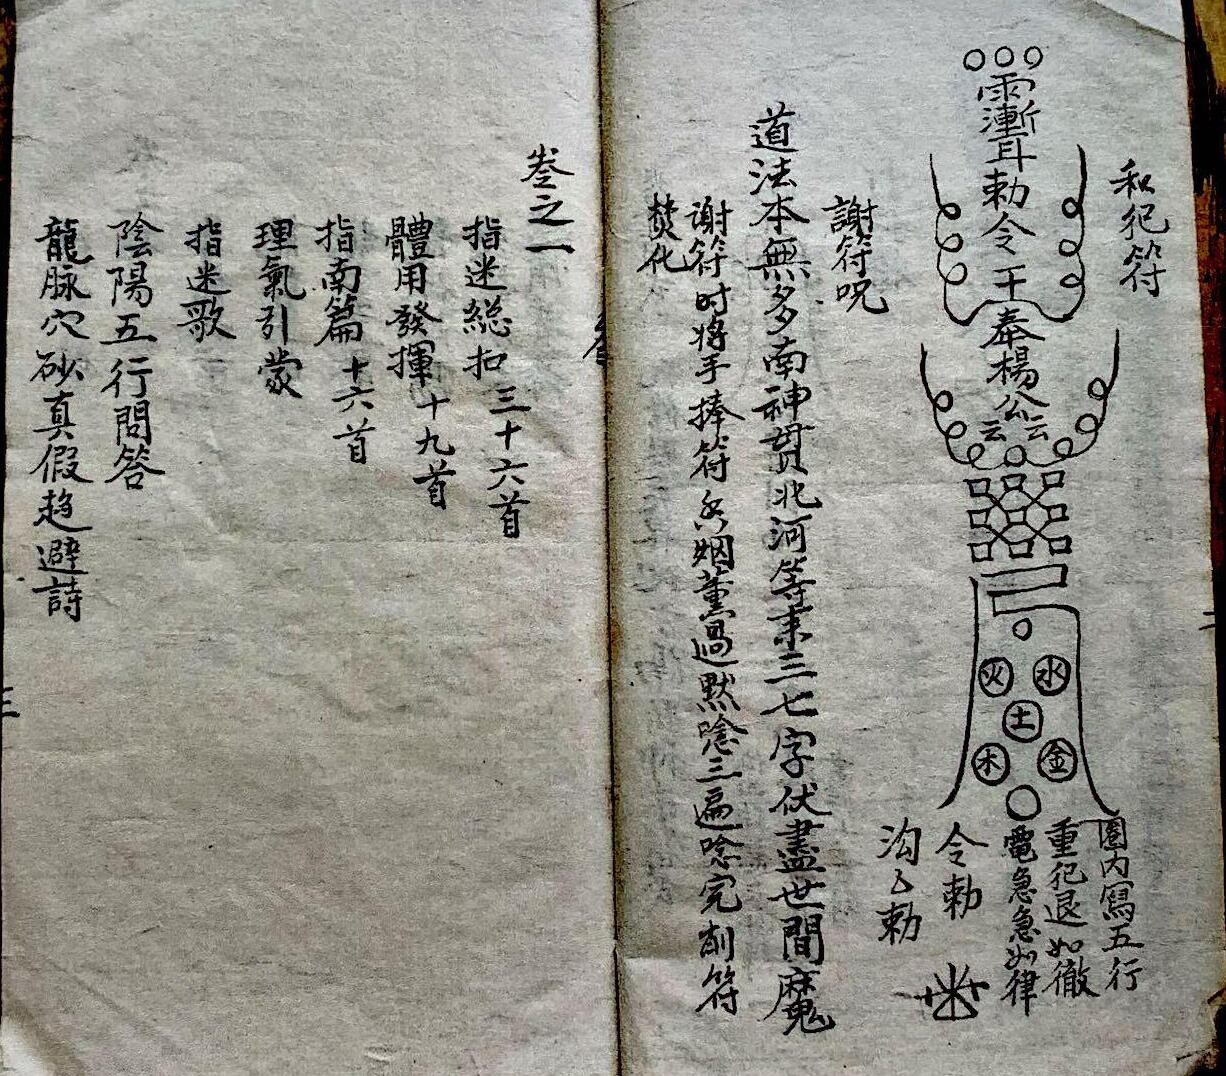 和犯符
勅令
奉楊公
云云
火 水
土
木 金
圈内寫五行
重犯退如徹
電急急如律
令勅
沟勅
謝符呪
道法本無多南神貫北河等来三七字伏盡世間魔
谢符时将手捧符烟薰過默唸三遍唸完削符
焚化
卷之一
指迷総扣三十六首
體用發揮十九首
指南篇十六首
理氣引蒙
指迷歌
陰陽五行問答
龍脉穴砂真假趋避詩
三